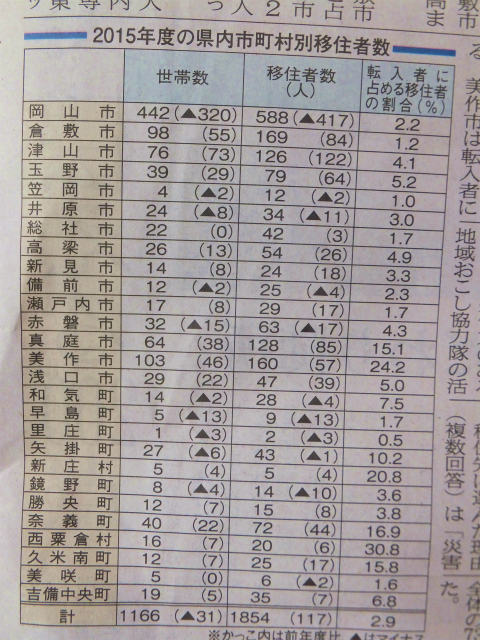 2015年度の県内市町村別移住者数
世帯数 移住者数(人) 転入者に占める移住者の割合(%)
岡山市 442 (▲320) 588 (▲417) 2.2
倉敷市 98 (55) 169 (84) 1.2
津山市 76 (73) 126 (122) 4.1
玉野市 39 (29) 79 (64) 5.2
笠岡市 4 (▲2) 12 (▲2) 1.0
井原市 24 (▲8) 34 (▲11) 3.0
総社市 22 (0) 42 (3) 1.7
高梁市 26 (13) 54 (26) 4.9
新見市 14 (8) 24 (18) 3.3
備前市 12 (▲2) 25 (▲4) 2.3
瀬戸内市 17 (8) 29 (17) 1.7
赤磐市 32 (▲15) 63 (▲17) 4.3
真庭市 64 (38) 128 (85) 15.1
美作市 103 (46) 160 (57) 24.2
浅口市 29 (22) 47 (39) 5.0
和気町 14 (▲2) 28 (▲4) 7.5
早島町 5 (▲13) 9 (▲13) 1.7
里庄町 1 (▲3) 2 (▲3) 0.5
矢掛町 27 (▲6) 43 (▲1) 10.2
新庄村 5 (4) 5 (4) 20.8
鏡野町 8 (▲4) 14 (▲10) 3.6
勝央町 12 (7) 15 (8) 3.8
奈義町 40 (22) 72 (44) 16.9
西粟倉村 16 (7) 20 (6) 30.8
久米南町 12 (7) 25 (17) 15.8
美咲町 5 (0) 6 (▲2) 1.6
吉備中央町 19 (5) 35 (7) 6.8
計 1166 (▲31) 1854 (117) 2.9
※かっこ内は前年度比
敷市
る
美作市は転入者に
地域おこし協力隊の活
(複数回答)は「災害
た。